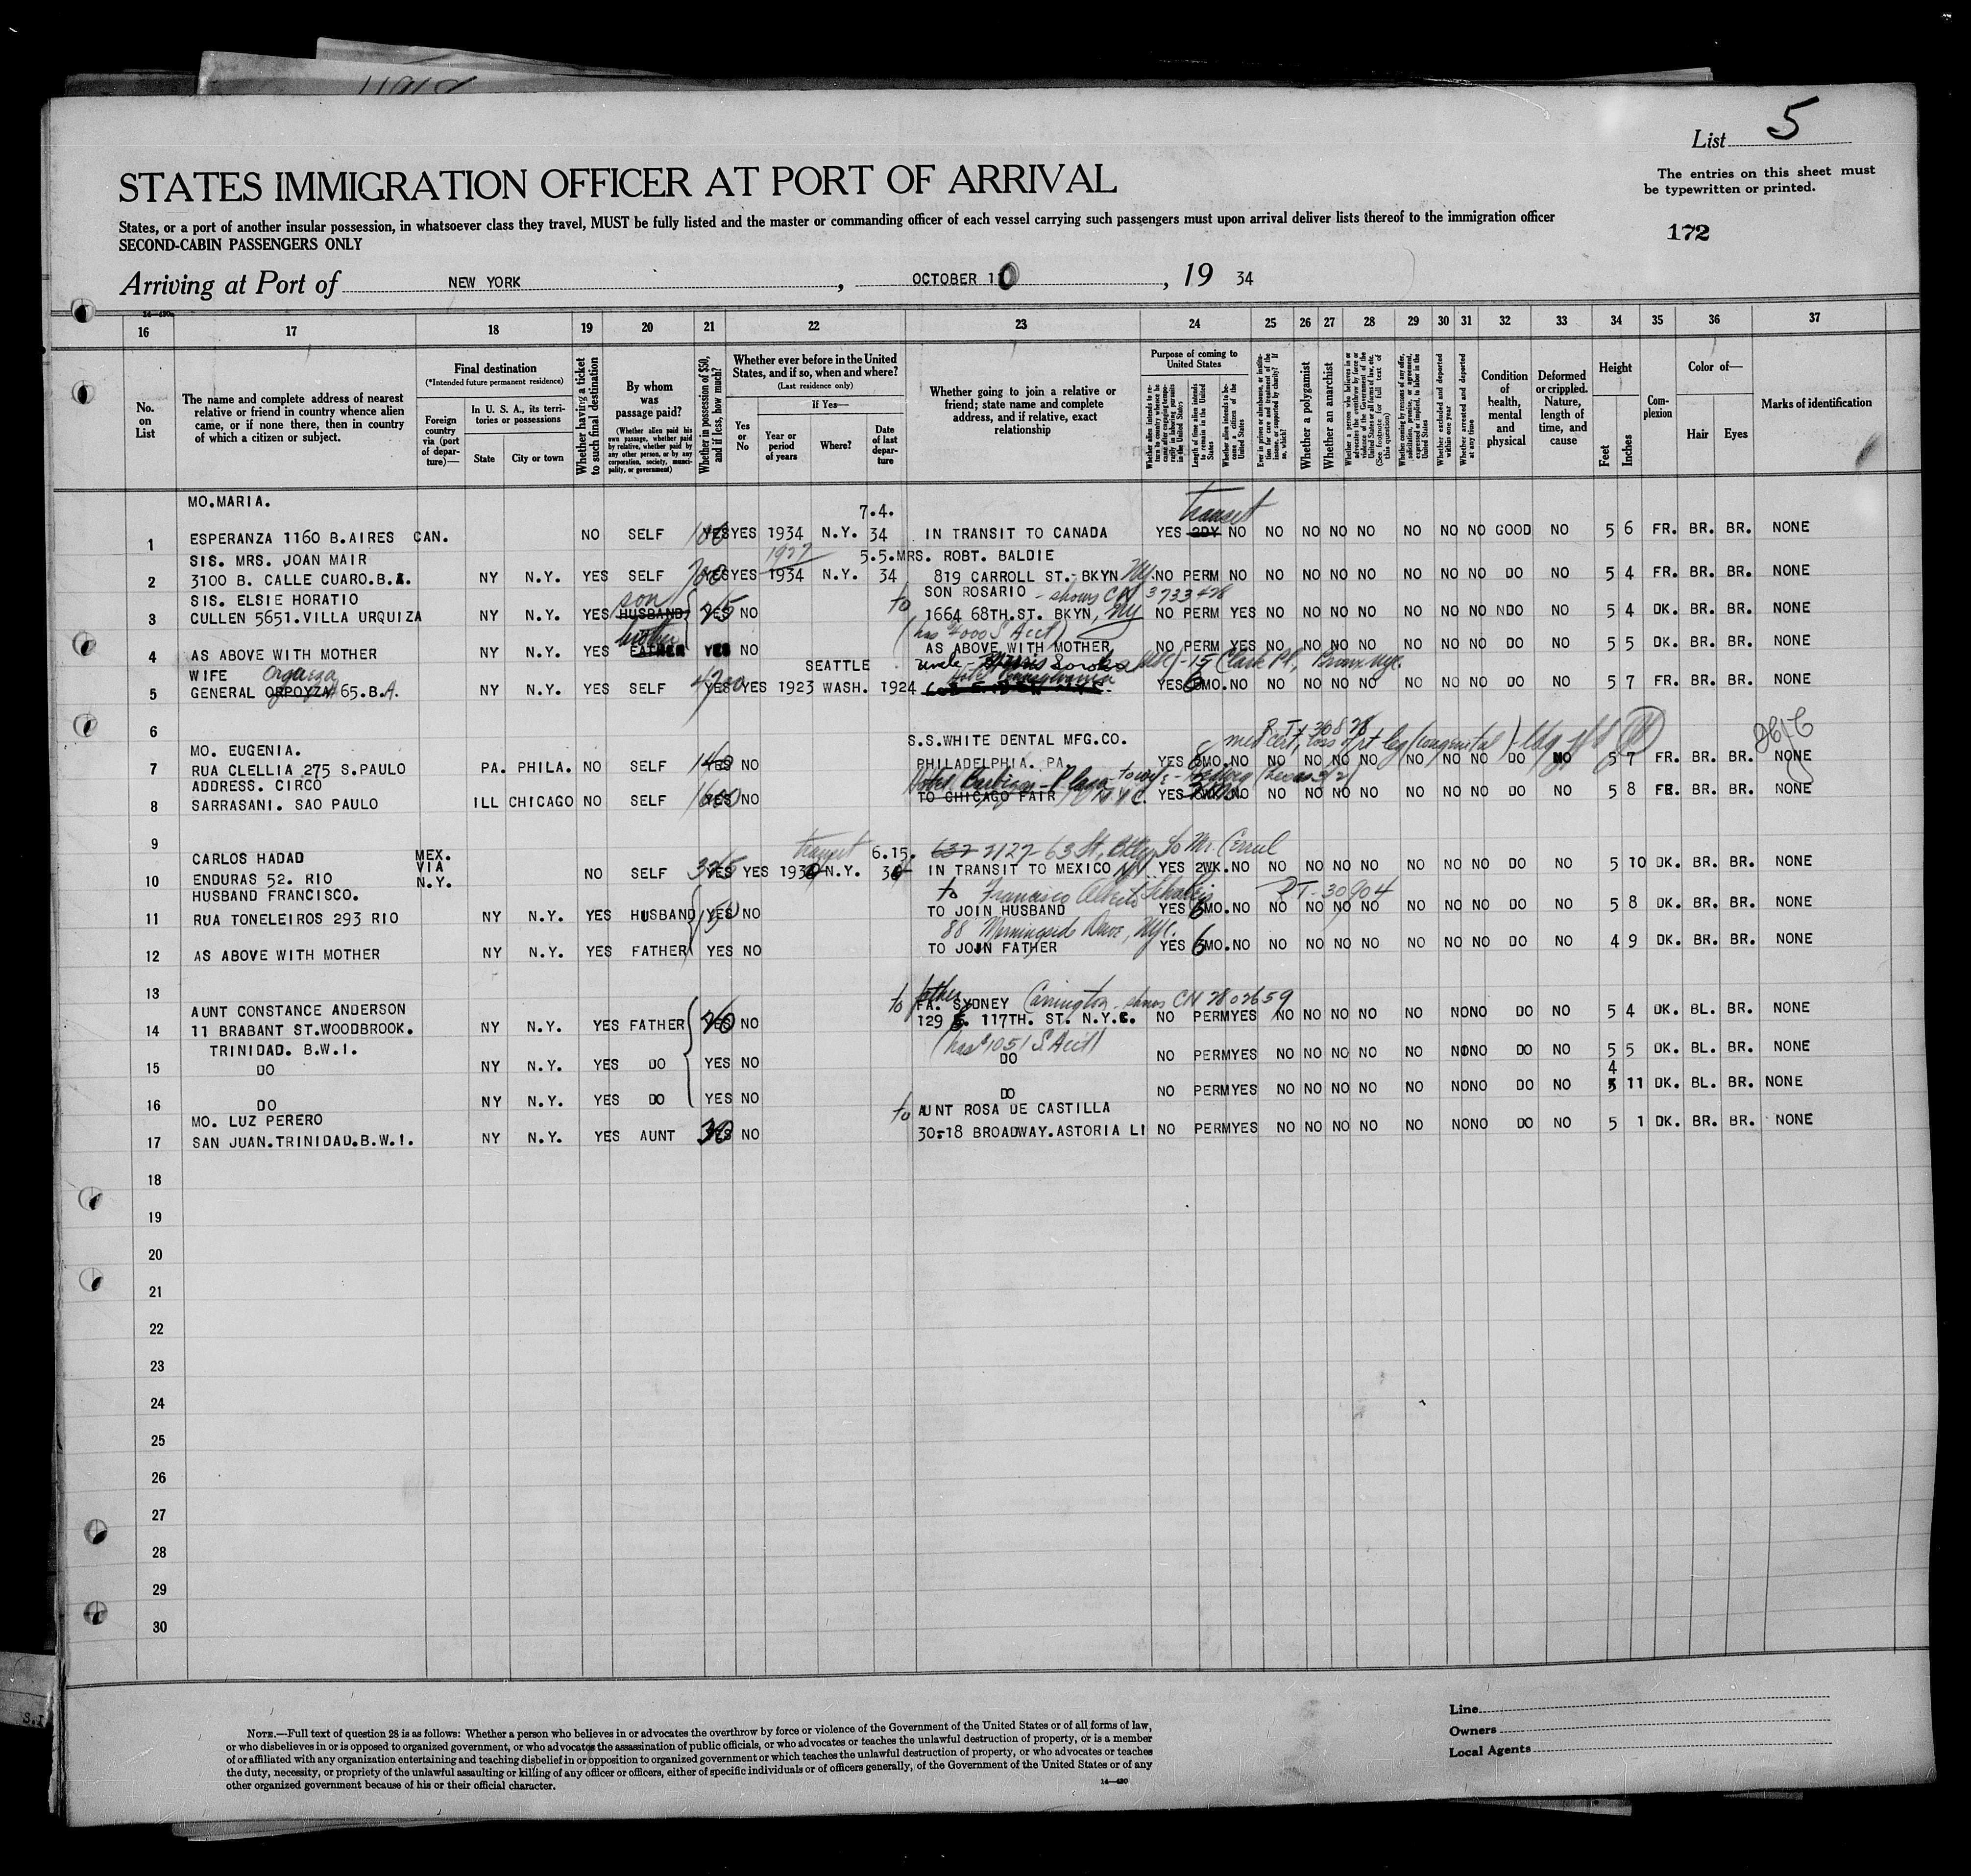 List 5
The entries on this sheet must
be typewritten or printed.
172
STATES IMMIGRATION OFFICER AT PORT OF ARRIVAL
States, or a port of another insular possession, in whatsoever class they travel, MUST be fully listed and the master or commanding officer of each vessel carrying such passengers must upon arrival deliver lists thereof to the immigration officer
SECOND-CABIN PASSENGERS ONLY
Arriving at Port of NEW YORK, OCTOBER 10, 19 34
16 17 18 19 20 21 22 23 24 25 26 27 28 29 30 31 32 33 34 35 36 37
No. on List
The name and complete address of nearest relative or friend in country whence alien came, or if none there, then in country of which a citizen or subject.
Final destination
(*Intended future permanent residence)
Foreign country via (port of departure)—
In U. S. A., its territories or possessions
State
City or town
Whether having a ticket to such final destination
By whom was passage paid?
(Whether alien paid his own passage, whether paid by relative, whether paid by any other person, or by any corporation, society, municipality, or government)
Whether in possession of $50, and if less, how much?
Whether ever before in the United States, and if so, when and where?
(Last residence only)
Yes or No
If Yes—
Year or period of years
Where?
Date of last departure
Whether going to join a relative or friend; state name and complete address, and if relative, exact relationship
Purpose of coming to United States
Length of time alien intends to remain in the United States
Whether alien intends to become a citizen of the United States
Whether a polygamist
Whether an anarchist
Whether excluded and deported within one year
Whether arrested and deported at any time
Condition of health, mental and physical
Deformed or crippled. Nature, length of time, and cause
Height
Feet
Inches
Complexion
Color of—
Hair
Eyes
Marks of identification
MO.MARIA. 7.4. transit
1 ESPERANZA 1160 B.AIRES CAN. NO SELF 100 YES YES 1934 N.Y. 34 IN TRANSIT TO CANADA YES 2DY NO NO NO NO NO NO NO NO GOOD NO 5 6 FR. BR. BR. NONE
SIS. MRS. JOAN MAIR 1927 5.5. MRS. ROBT. BALDIE
2 3100 B. CALLE CUARO.B.A. NY N.Y. YES SELF YES YES 1934 N.Y. 34 819 CARROLL ST.- BKYN NY. NO PERM NO NO NO NO NO NO NO NO DO NO 5 4 FR. BR. BR. NONE
SIS. ELSIE HORATIO son to SON ROSARIO - shows CN 3733428
3 CULLEN 5651.VILLA URQUIZA NY N.Y. YES HUSBAND YES NO 1664 68TH.ST. BKYN, NY NO PERM YES NO NO NO NO NO NO NO DO NO 5 4 DK. BR. BR. NONE
brother
4 AS ABOVE WITH MOTHER NY N.Y. YES FATHER YES NO AS ABOVE WITH MOTHER NO PERM YES NO NO NO NO NO NO NO DO NO 5 5 DK. BR. BR. NONE
WIFE SEATTLE uncle - 15 Clark Pl., Bronx NYC.
5 GENERAL ORPOYZA 65.B.A. NY N.Y. YES SELF YES YES 1923 WASH. 1924 Hotel Pennsylvania YES 6MO. NO NO NO NO NO NO NO NO DO NO 5 7 FR. BR. BR. NONE
6
MO. EUGENIA. S.S.WHITE DENTAL MFG.CO. med cert, loss of rt leg (congenital)
7 RUA CLELLIA 275 S.PAULO PA. PHILA. NO SELF YES NO PHILADELPHIA. PA. YES 6MO. NO NO NO NO NO NO NO NO DO NO 5 7 FR. BR. BR. NONE
ADDRESS. CIRCO Hotel Barbizon-Plaza
8 SARRASANI. SAO PAULO ILL CHICAGO NO SELF YES NO TO CHICAGO FAIR N.Y.C. YES NO NO NO NO NO NO NO NO DO NO 5 8 FR. BR. BR. NONE
9
CARLOS HADAD MEX. VIA N.Y. transit 6.15. 2127-63 St, Bklyn
10 ENDURAS 52. RIO NO SELF YES YES 1930 N.Y. 30 IN TRANSIT TO MEXICO NY YES 2WK. NO NO NO NO NO NO NO NO DO NO 5 10 DK. BR. BR. NONE
HUSBAND FRANCISCO. to Francisco Alberto RT-30904
11 RUA TONELEIROS 293 RIO NY N.Y. YES HUSBAND YES NO TO JOIN HUSBAND YES 6MO. NO NO NO NO NO NO NO NO DO NO 5 8 DK. BR. BR. NONE
88 Morningside Drive, NYC.
12 AS ABOVE WITH MOTHER NY N.Y. YES FATHER YES NO TO JOIN FATHER YES 6MO. NO NO NO NO NO NO NO NO DO NO 4 9 DK. BR. BR. NONE
13
AUNT CONSTANCE ANDERSON to father FA. SYDNEY Carrington - shows CN 2802659
14 11 BRABANT ST.WOODBROOK. NY N.Y. YES FATHER YES NO 129 117TH. ST. N.Y.C. NO PERM YES NO NO NO NO NO NO NO DO NO 5 4 DK. BL. BR. NONE
TRINIDAD. B.W.I. (has $1051 S Acct)
15 DO NY N.Y. YES DO YES NO DO NO PERM YES NO NO NO NO NO NO NO DO NO 5 5 DK. BL. BR. NONE
16 DO NY N.Y. YES DO YES NO DO NO PERM YES NO NO NO NO NO NO NO DO NO 4 11 DK. BL. BR. NONE
MO. LUZ PERERO to AUNT ROSA DE CASTILLA
17 SAN JUAN.TRINIDAD.B.W.I. NY N.Y. YES AUNT 30 NO 30-18 BROADWAY.ASTORIA LI NO PERM YES NO NO NO NO NO NO NO DO NO 5 1 DK. BR. BR. NONE
18
19
20
21
22
23
24
25
26
27
28
29
30
NOTE.—Full text of question 28 is as follows: Whether a person who believes in or advocates the overthrow by force or violence of the Government of the United States or of all forms of law,
or who disbelieves in or is opposed to organized government, or who advocates the assassination of public officials, or who advocates or teaches the unlawful destruction of property, or is a member
of or affiliated with any organization entertaining and teaching disbelief in or opposition to organized government or which teaches the unlawful destruction of property, or who advocates or teaches
the duty, necessity, or propriety of the unlawful assaulting or killing of any officer or officers, either of specific individuals or of officers generally, of the Government of the United States or of any
other organized government because of his or their official character.
14—430
Line
Owners
Local Agents